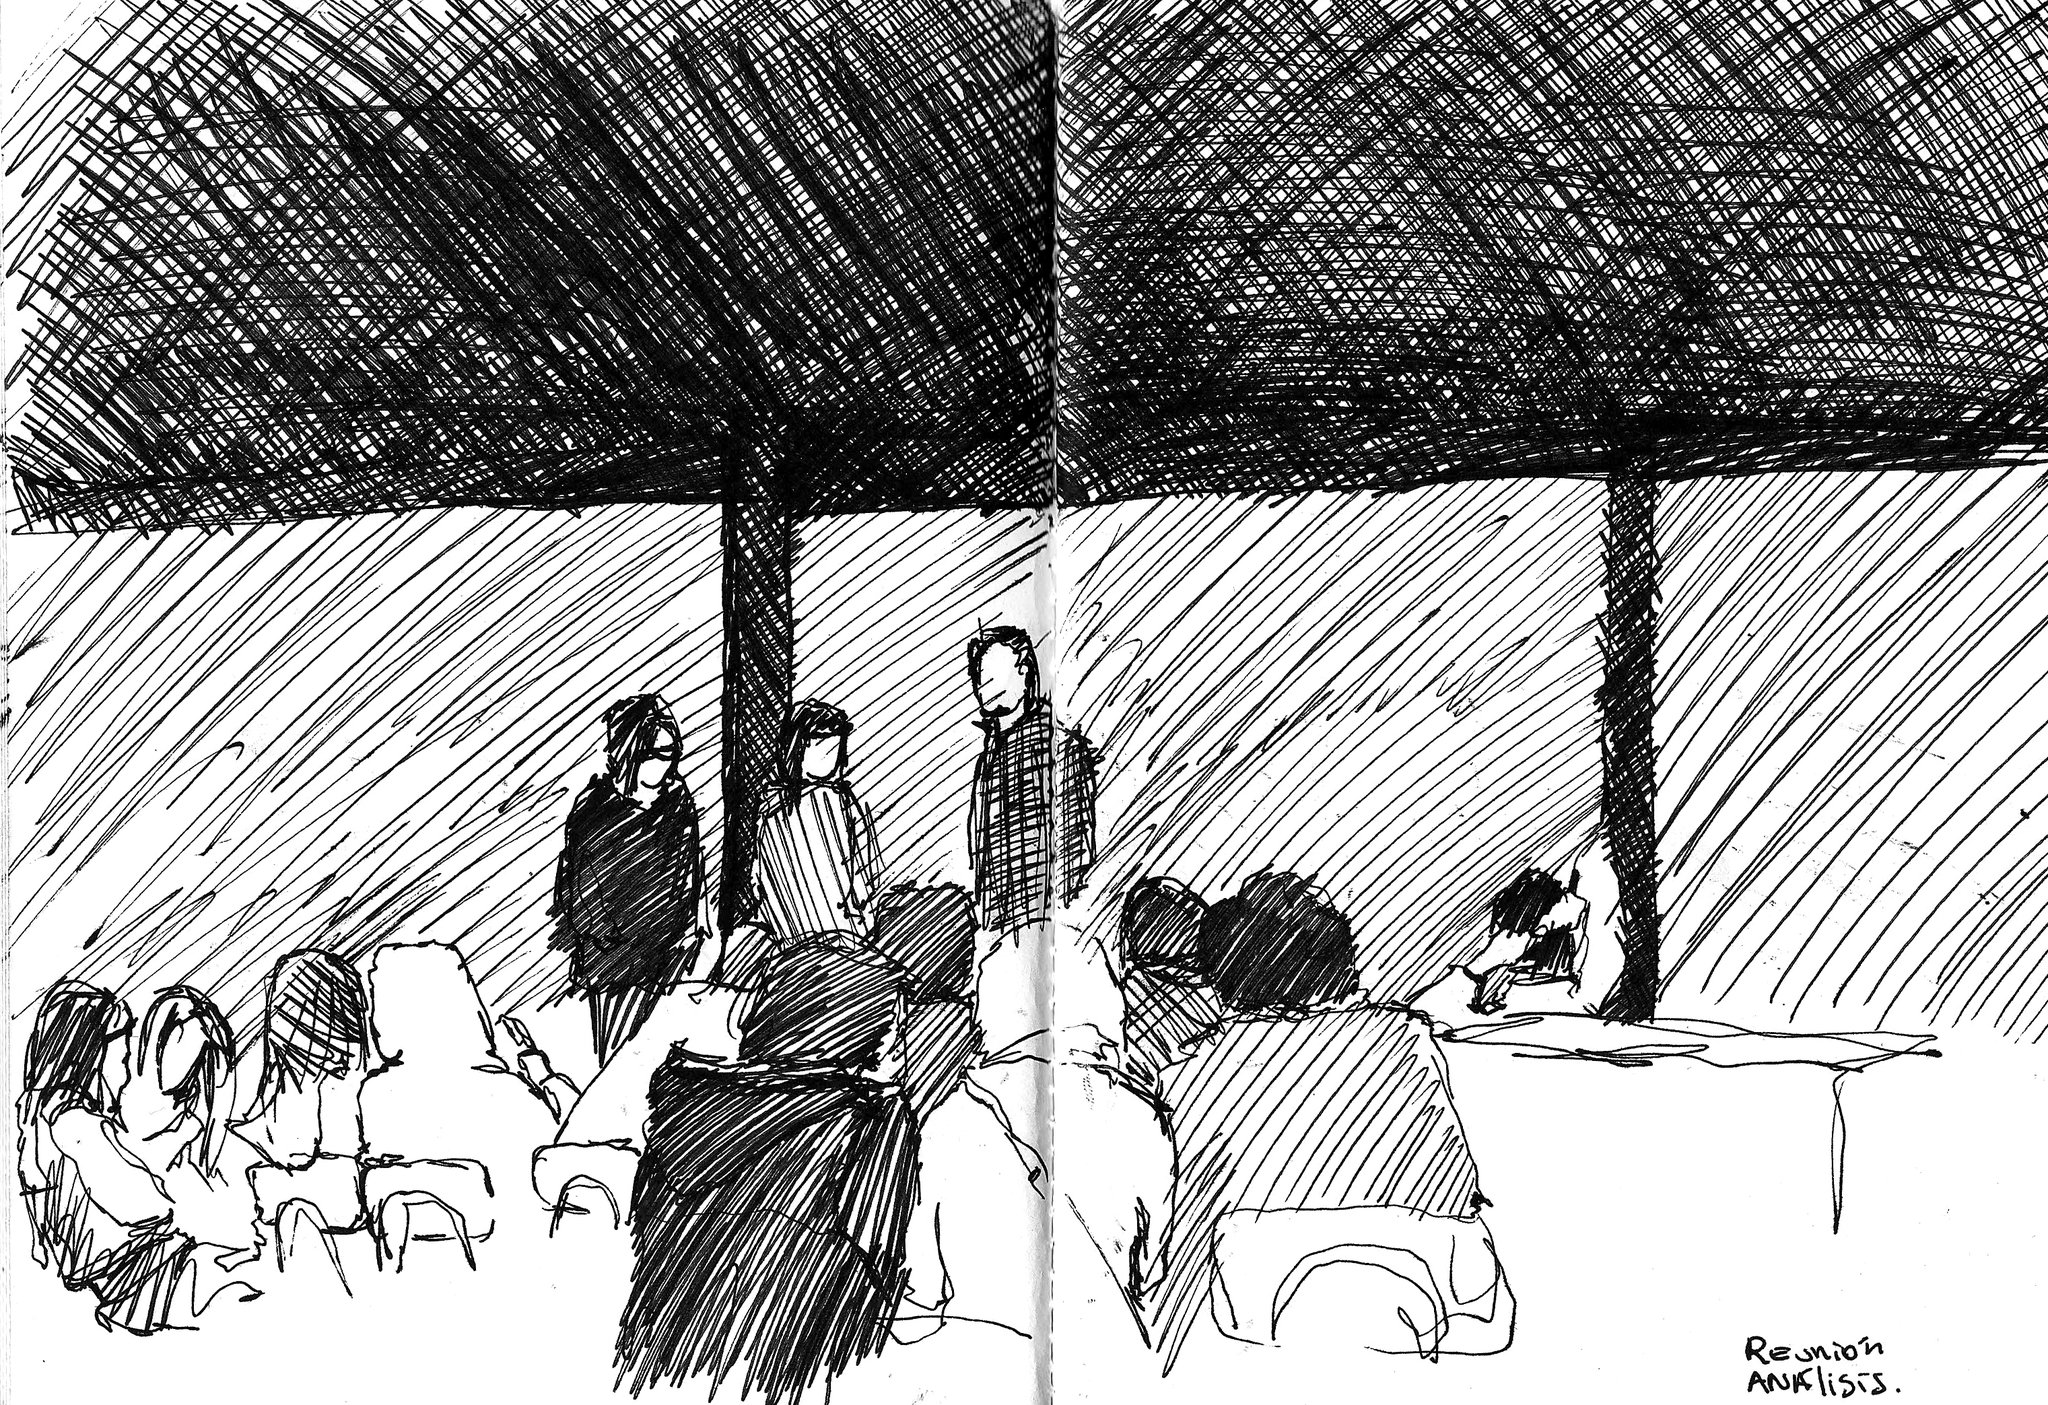 Reunión
ANÁlisis.